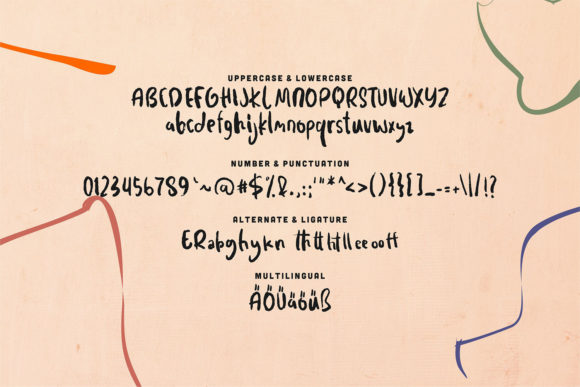 UPPERCASE & LOWERCASE
ABCDEFGHIJKLMNOPQRSTUVWXYZ
abcdefghijklmnopqrstuvwxyz
NUMBER & PUNCTUATION
0123456789`~@#$%&.,:;'"*^<>(){}[]_-=+\|/!?
ALTERNATE & LIGATURE
ERabghykn thttlitlleeoott
MULTILINGUAL
ÄÖÜäöüß